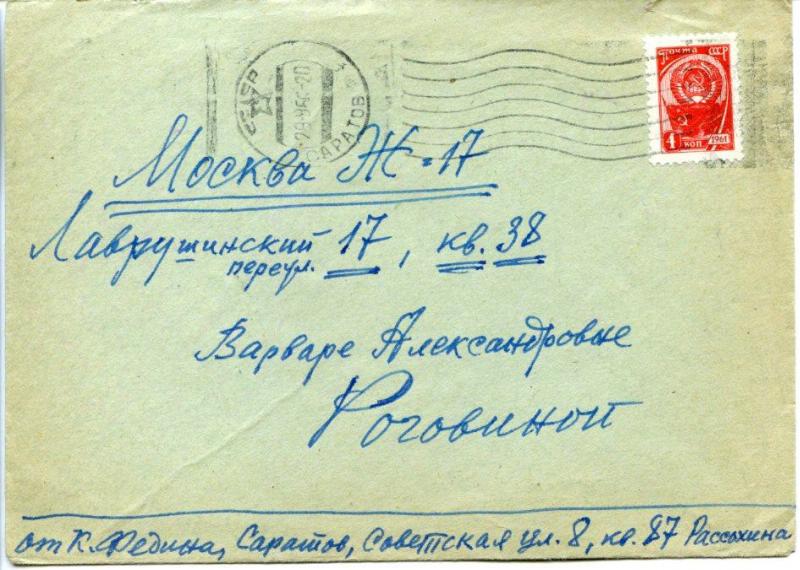 ПОЧТА СССР
4 КОП 1961
СССР
САРАТОВ
Москва Ж-17
Лаврушинский 17, кв. 38
переул.
Варваре Александровне
Роговиной
от К. Федина, Саратов, Советская ул. 8, кв. 87 Рассохина